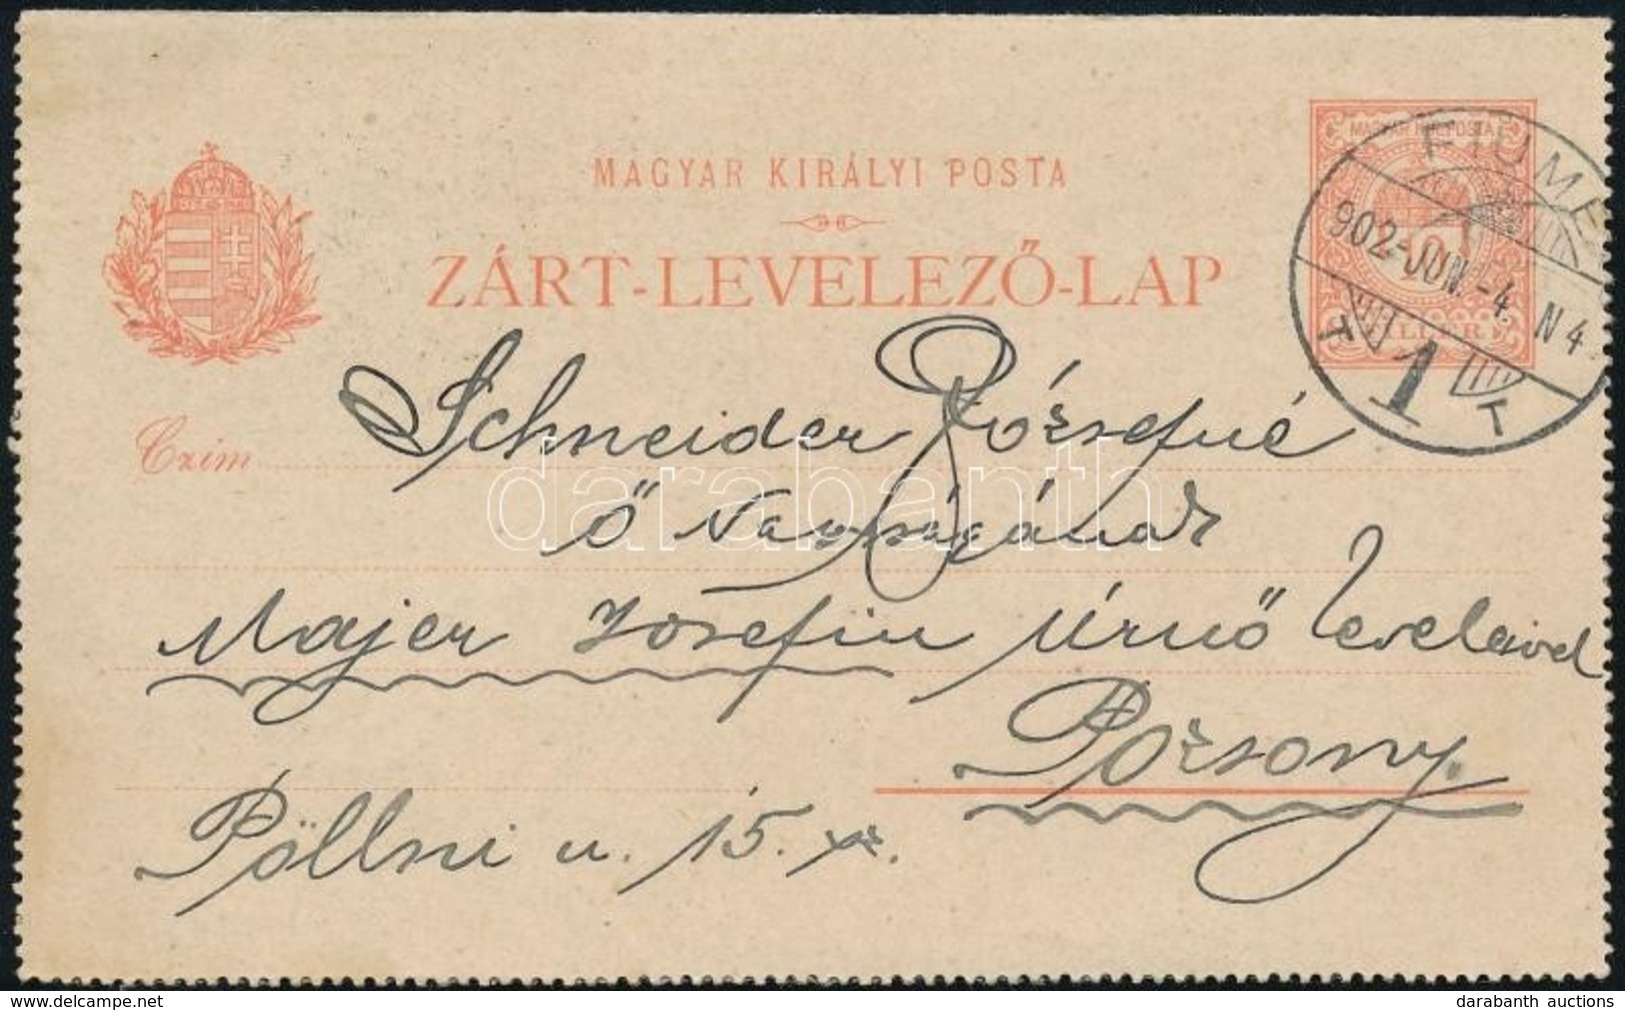 MAGYAR KIRÁLYI POSTA
ZÁRT-LEVELEZŐ-LAP
MAGYAR KIR. POSTA
FIUME
902-JUN.-4. N 4
T 1 T
Czím
Schneider Józsefné
Ő Nagyságának
Majer Josefin Úrnő levelével
Pozsony.
Pöllni u. 15.
darabanth
delcampe.net
darabanth auctions